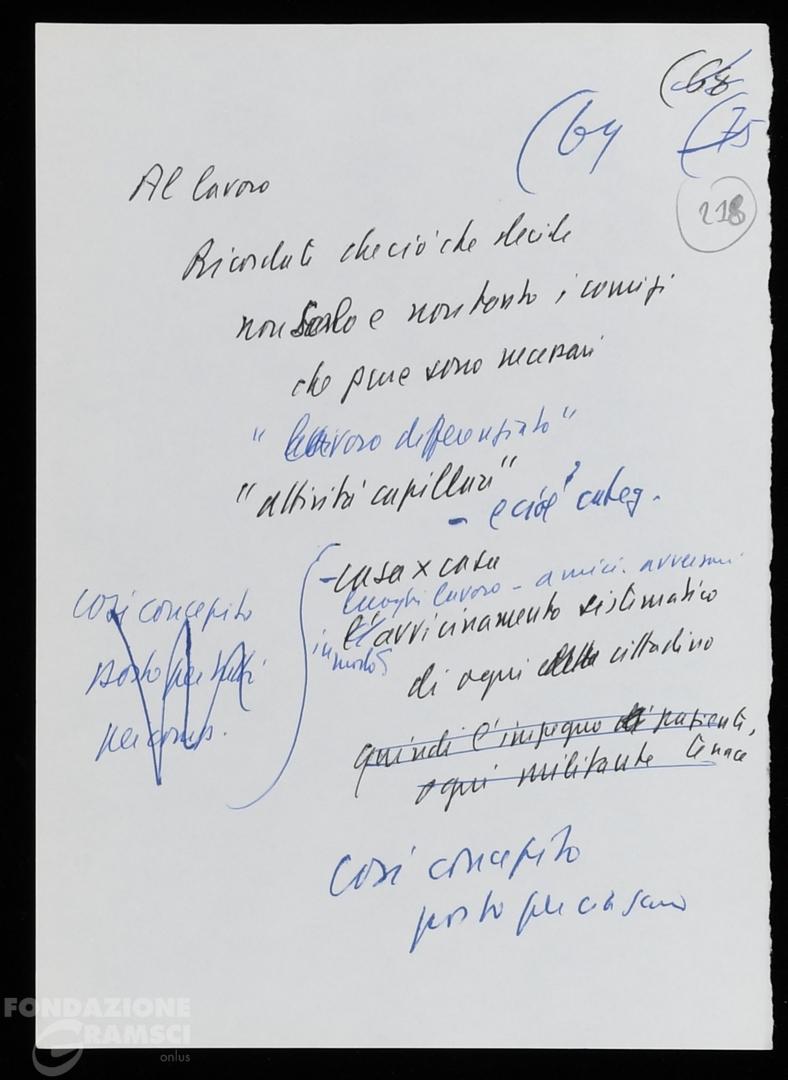 (68
(64 (75
218
Al lavoro
Ricordati che ciò che decide
non solo e non tanto i comizi
che pure sono necessari
"lavoro differenziato"
"attività capillari"
- e cioè categ.
- casa x casa
luoghi lavoro - amici. avversari
l'avvicinamento sistematico
in modo
di ogni cittadino
Così concepito
posto per tutti
per comp.
quindi l'impegno di pazienti,
ogni militante tenace
Così concepito
posto per ciascuno
FONDAZIONE
GRAMSCI
onlus